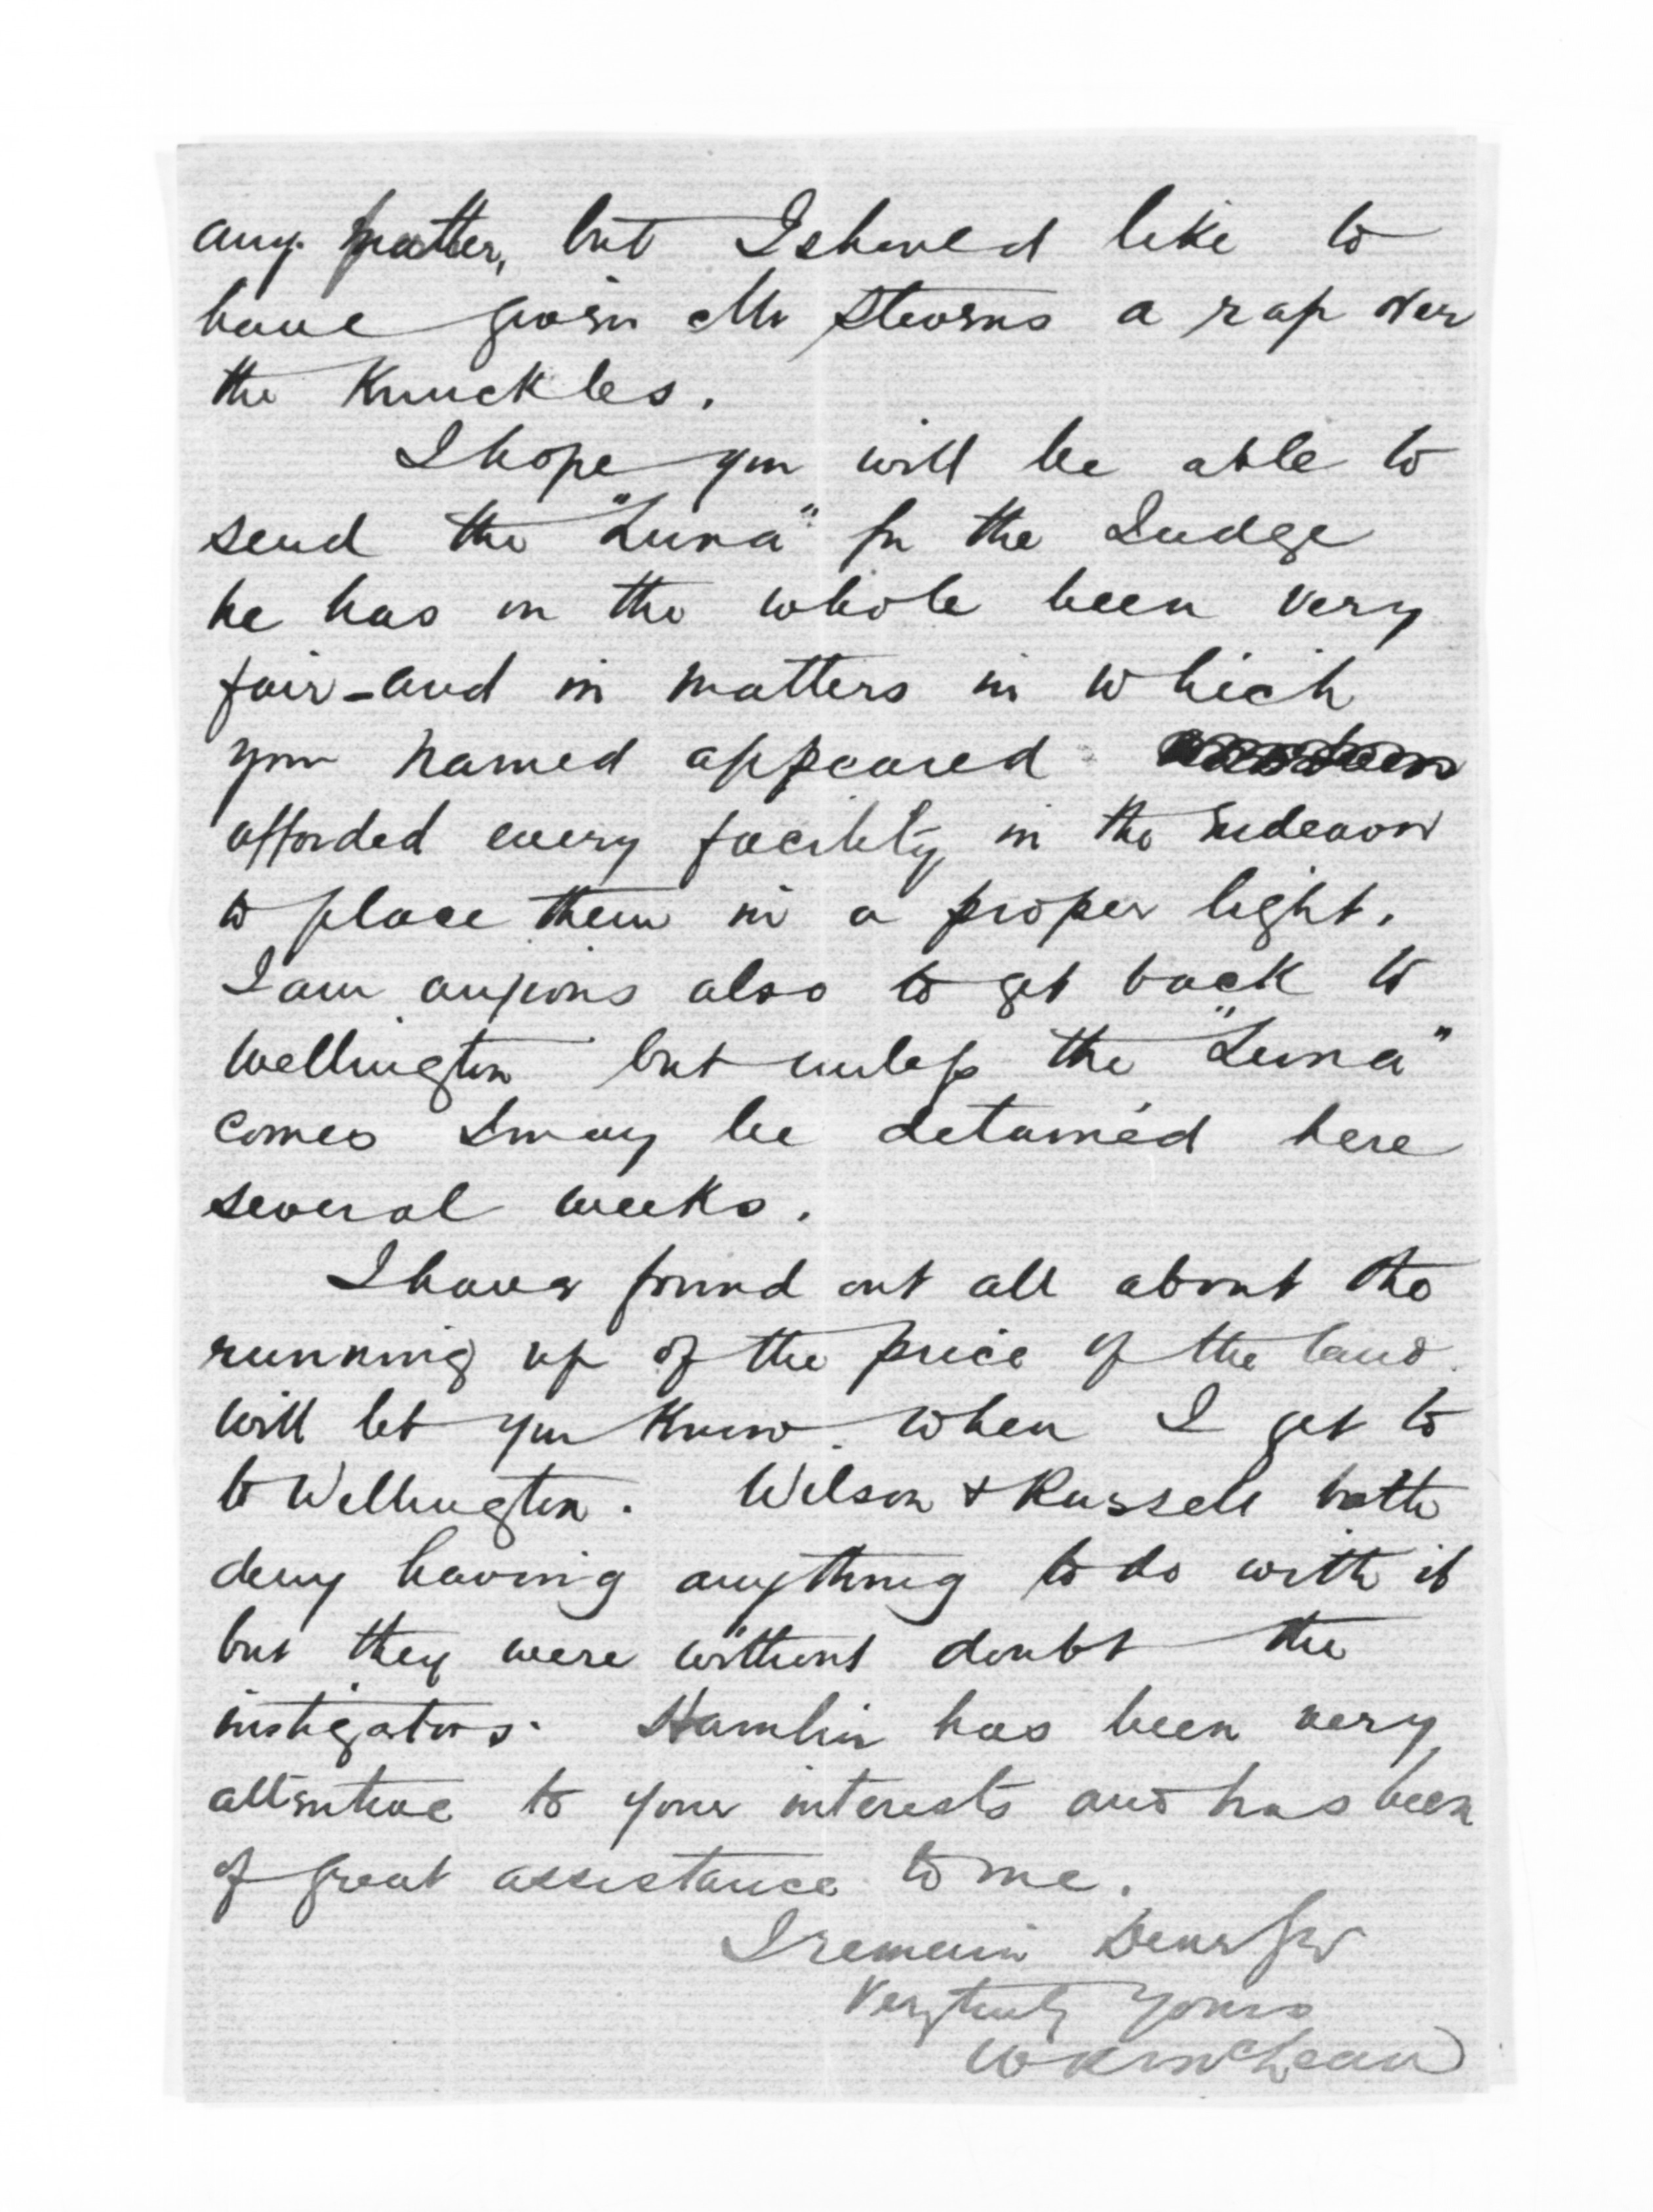 any matter, but I should like to
have given Mr Stevens a rap over
the Knuckles.
I hope you will be able to
send the "Luna" for the Judge
he has on the whole been very
fair - and in matters in which
your named appeared
afforded every facility in the endeavor
to place them in a proper light.
I am anxious also to get back to
Wellington but unless the "Luna"
comes I may be detained here
several weeks.
I have found out all about the
running up of the price of the land
will let you know when I get to
to Wellington. Wilson & Russell both
deny having anything to do with it
but they were without doubt the
instigators. Hamlin has been very
attentive to your interests and has been
of great assistance to me.
I remain Dear Sir
Very truly Yours